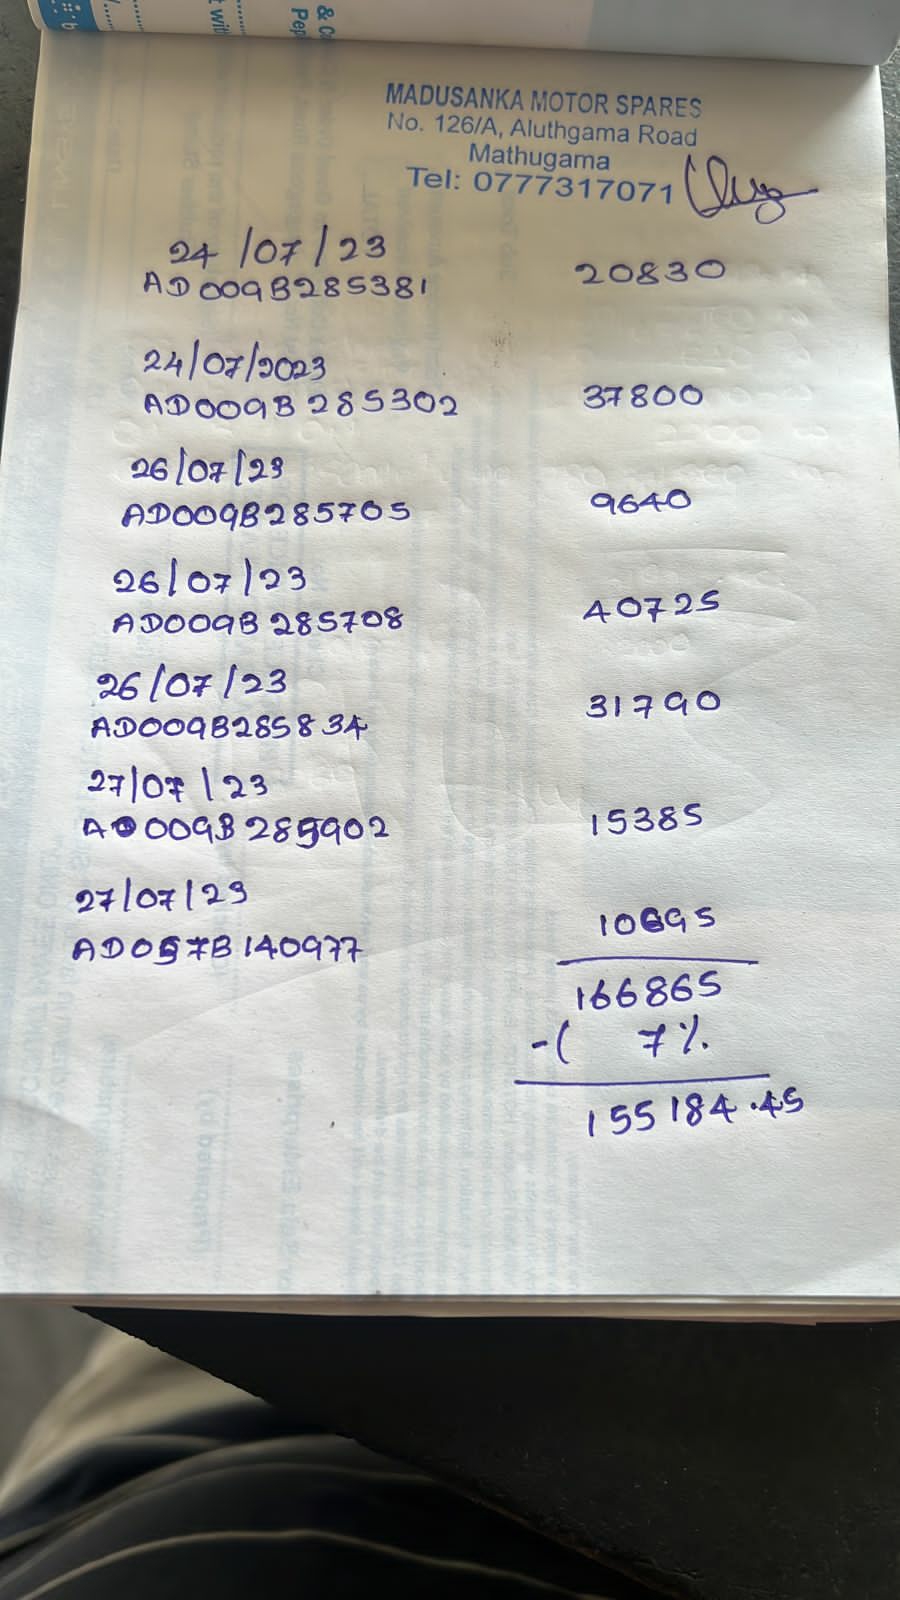 & Co
Pep
t with
MADUSANKA MOTOR SPARES
No. 126/A, Aluthgama Road
Mathugama
Tel: 0777317071
24/07/23
AD009B285381 20830
24/07/2023
AD009B285302 37800
26/07/23
AD009B285705 9640
26/07/23
AD009B285708 40725
26/07/23
AD009B285834 31790
27/07/23
AD009B285902 15385
27/07/23
AD057B140977 10695
166865
-( 7%.
155184.45